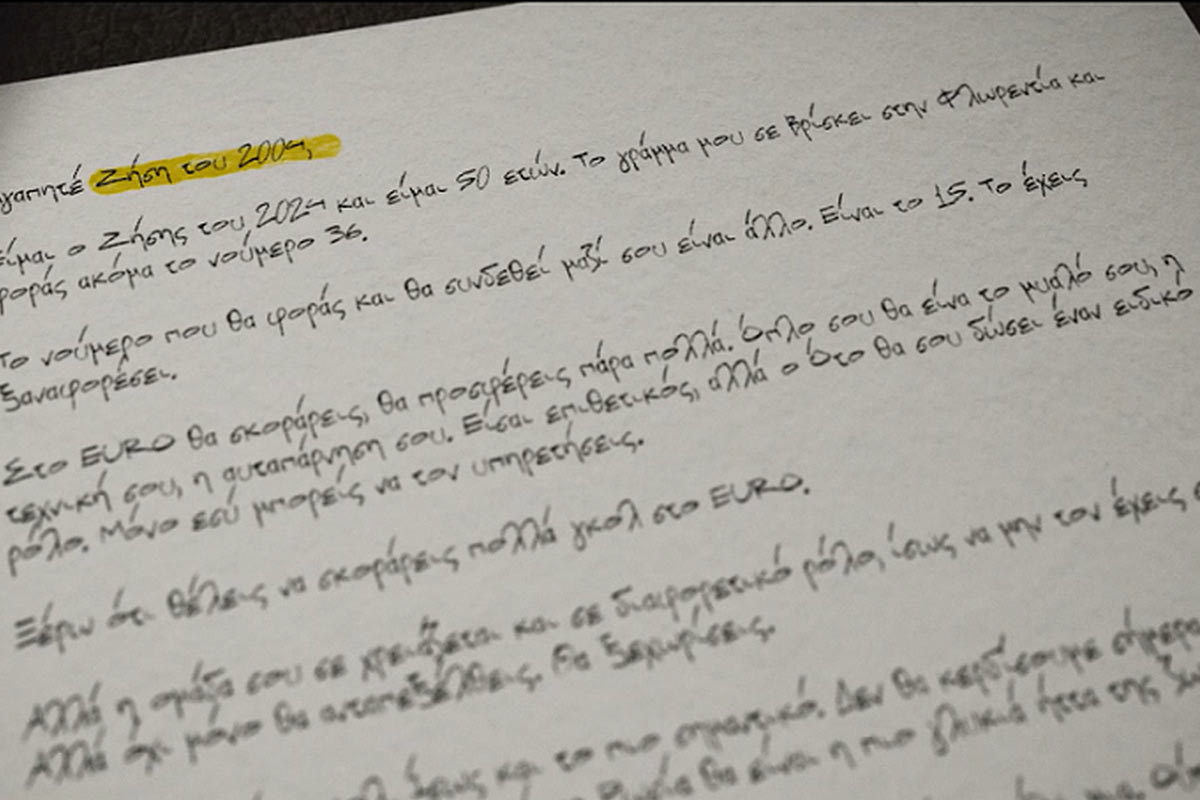 γαπητέ Ζήση του 2004,
είμαι ο Ζήσης του 2024 και είμαι 50 ετών. Το γράμμα μου σε βρίσκει στην Φλωρεντία και
φοράς ακόμα το νούμερο 36.
Το νούμερο που θα φοράς και θα συνδεθεί μαζί σου είναι άλλο. Είναι το 15. Το έχεις
ξαναφορέσει.
Στο EURO θα σκοράρεις, θα προσφέρεις πάρα πολλά. Όπλο σου θα είνα το μυαλό σου, η
τεχνική σου, η αυταπάρνηση σου. Είσαι επιθετικός, αλλά ο Ότο θα σου δώσει έναν ειδικό
ρόλο. Μόνο εσύ μπορείς να τον υπηρετήσεις.
Ξέρω ότι θέλεις να σκοράρεις πολλά γκολ στο EURO.
Αλλά η ομάδα σου σε χρειάζεται και σε διαφορετικό ρόλο, ίσως να μην τον έχεις
Αλλά όχι μόνο θα ανταπεξέλθεις. Θα ξεχωρίσεις.
ίσως και το πιο σημαντικό. Δεν θα κερδίσουμε σήμερα
Ρωσία θα είναι η πιο γλυκιά ήττα της